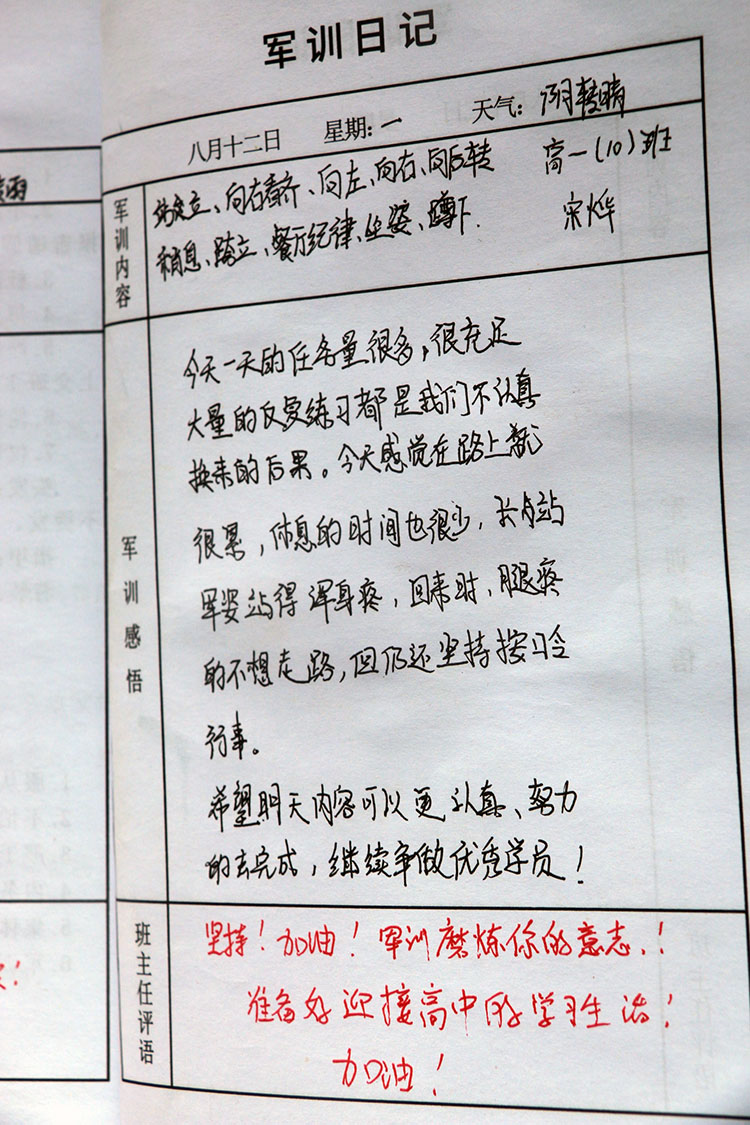 军训日记
八月十二日 星期:一 天气:阴转晴
军训内容
站定立、向右看齐、向左、向右、向后转 高一(10)班
稍息、跨立、餐厅纪律、坐姿、蹲下. 宋烨
军训感悟
今天一天的任务量很多,很充足
大量的反复练习都是我们不认真
换来的后果。今天感觉在路上就
很累,休息的时间也很少,长点站
军姿站得浑身疼,回来时,腿疼
的不想走路,但仍还坚持按口令
行事。
希望明天内容可以更认真、努力
的去完成,继续争做优秀学员!
班主任评语
坚持!加油!军训磨炼你的意志!
准备好迎接高中的学习生活!
加油!